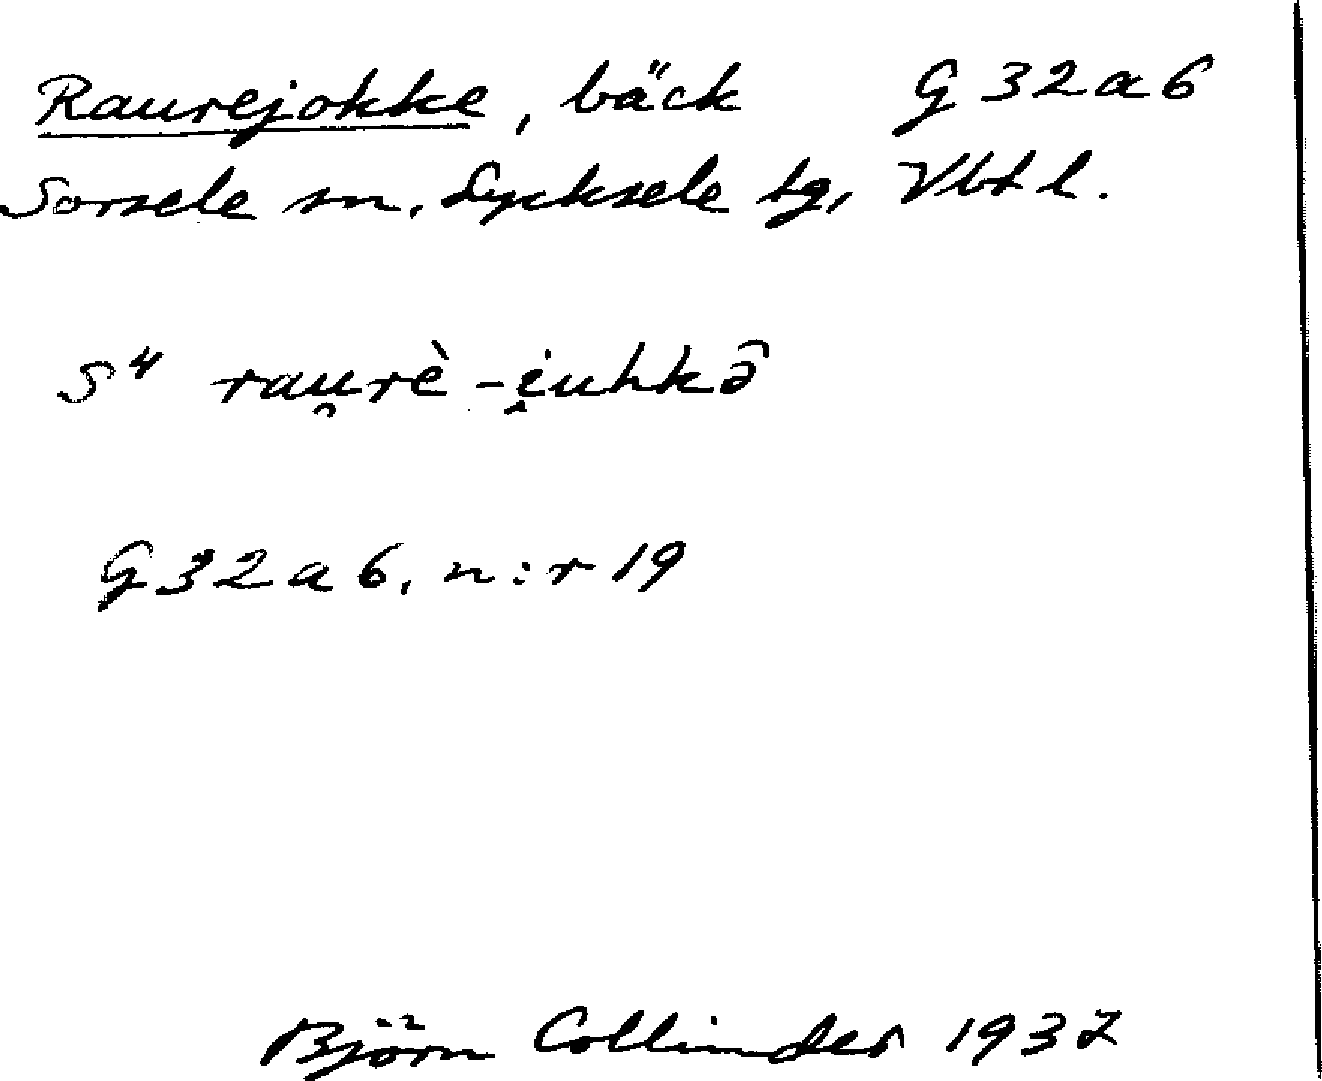 Raurejokke, bäck G 32 a 6
Sorsele sn. Lycksele tg, Vbtl.
S⁴ rau̯rè -i̯uhkə̂
G 32 a 6, n:r 19
Björn Collinder 1937